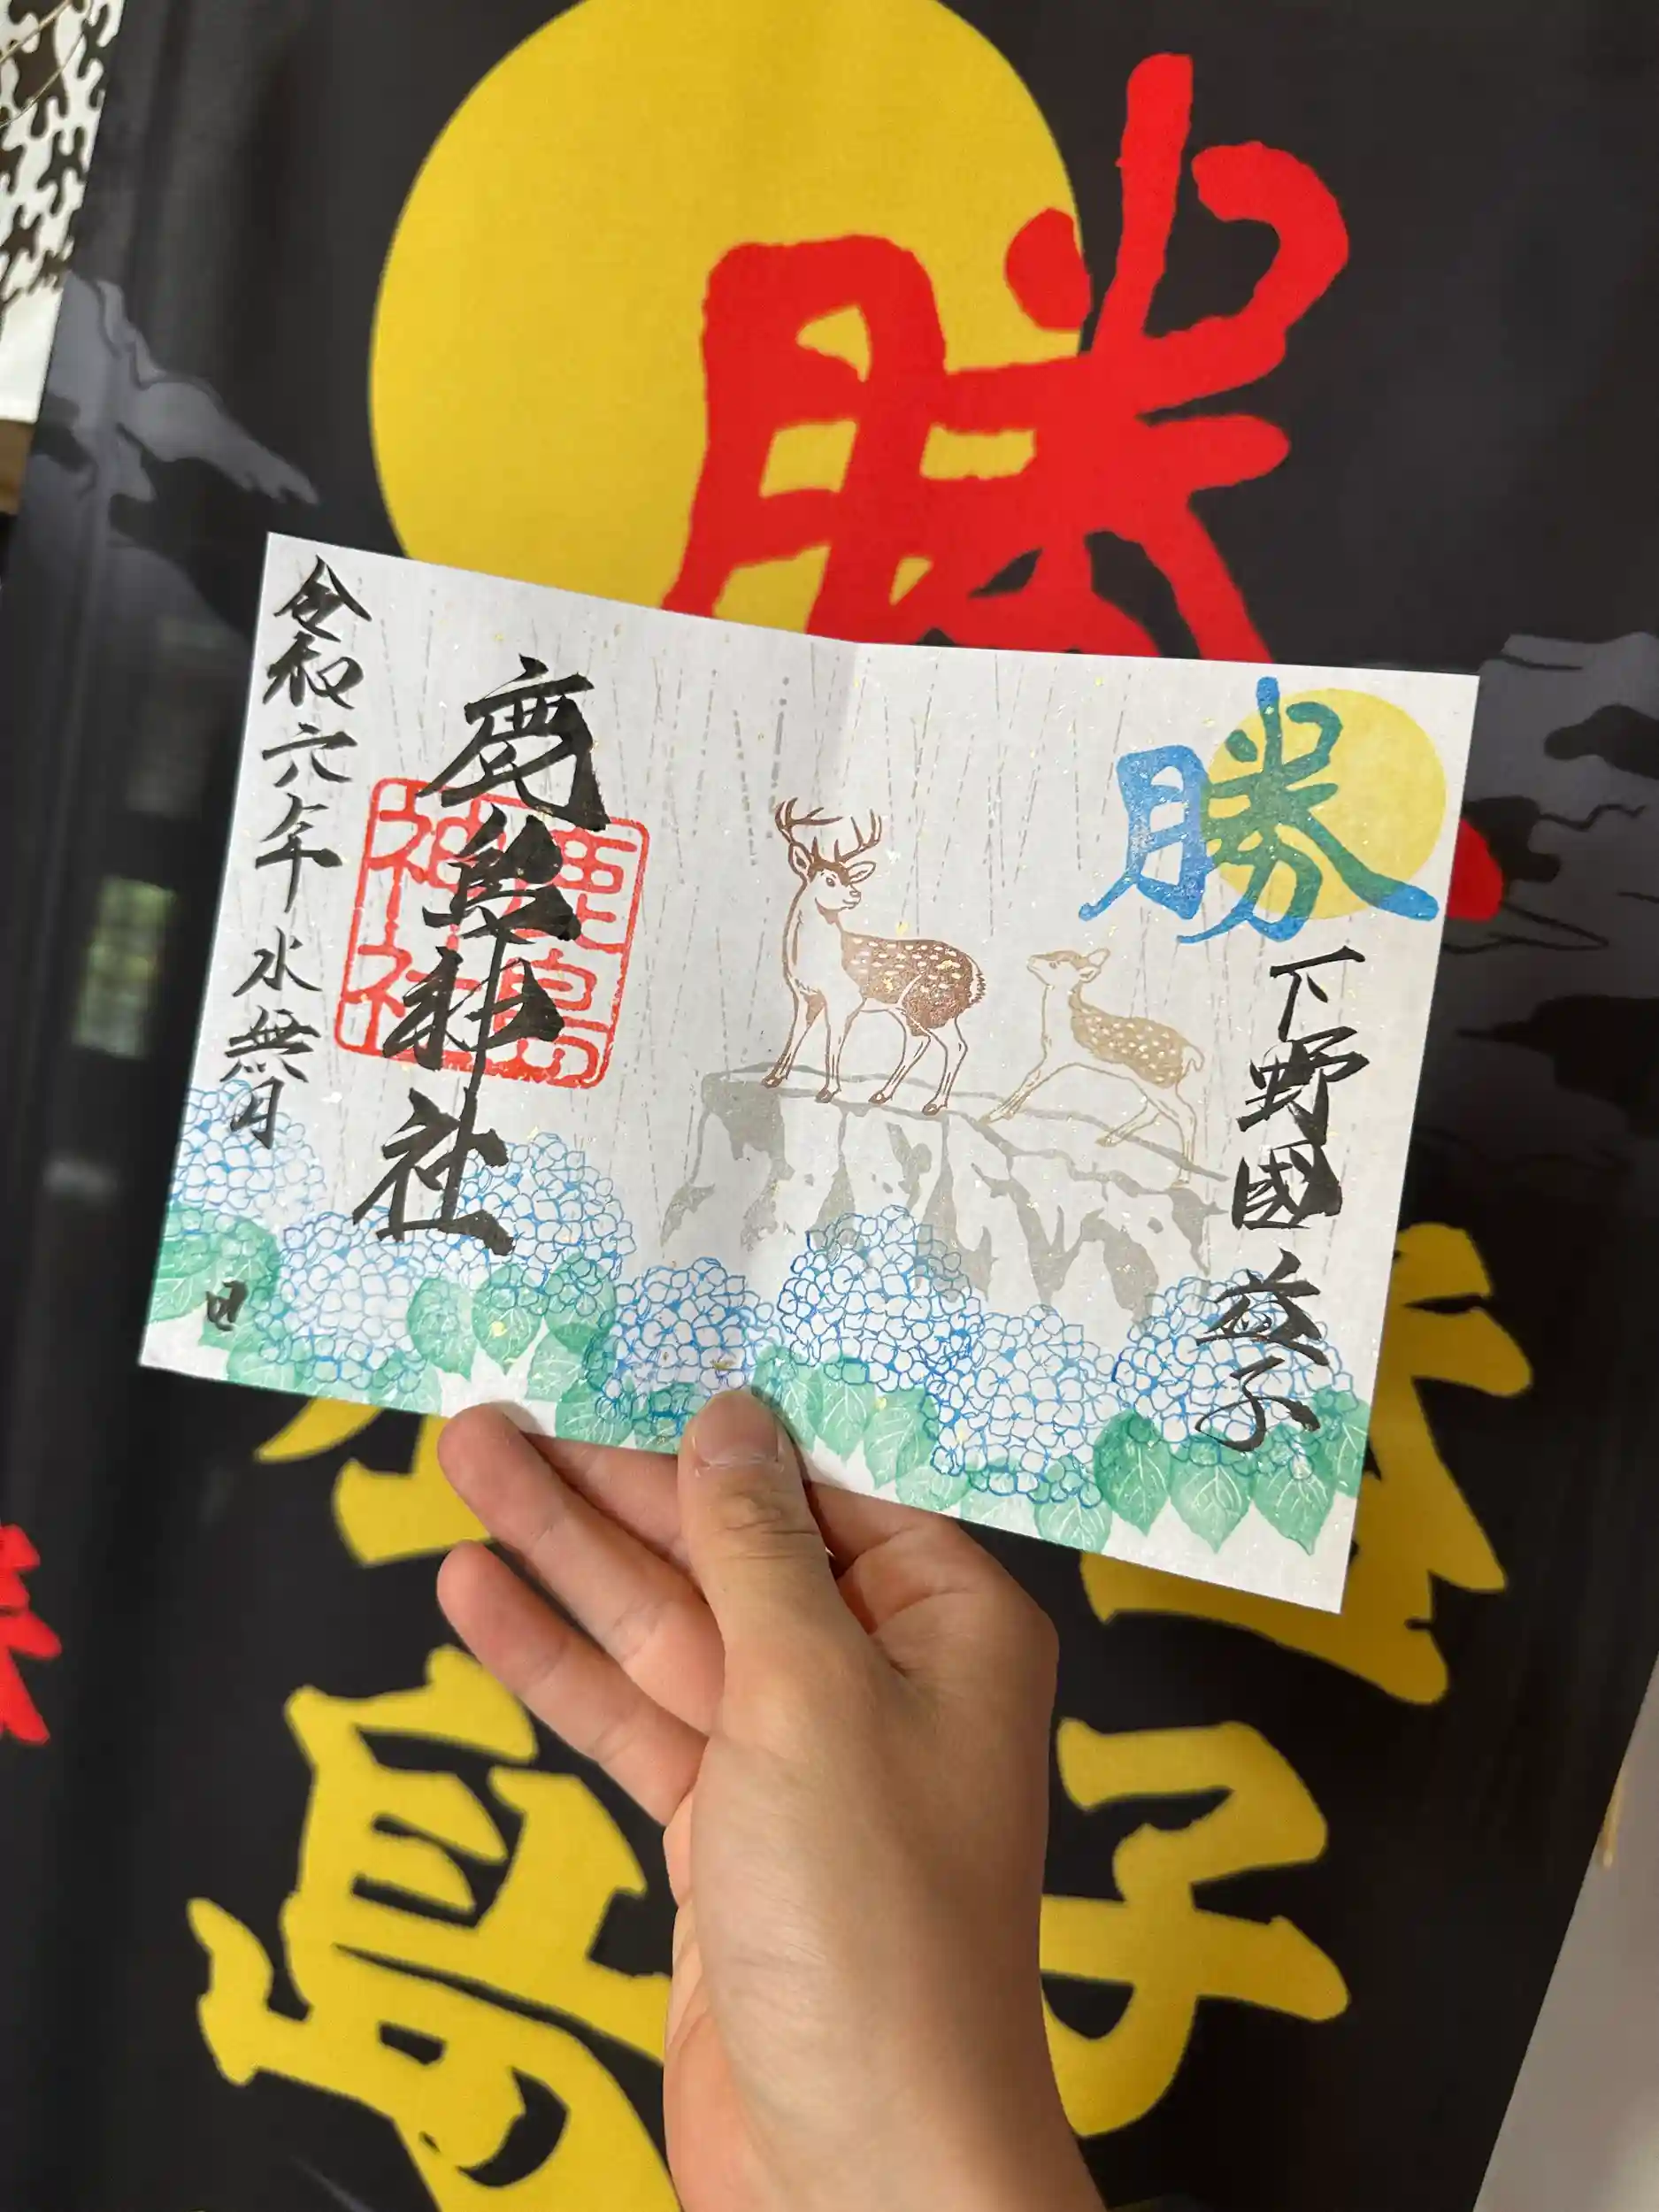 勝
勝
下野國 益子
鹿島神社
鹿島
神社
令和六年 水無月
日
子